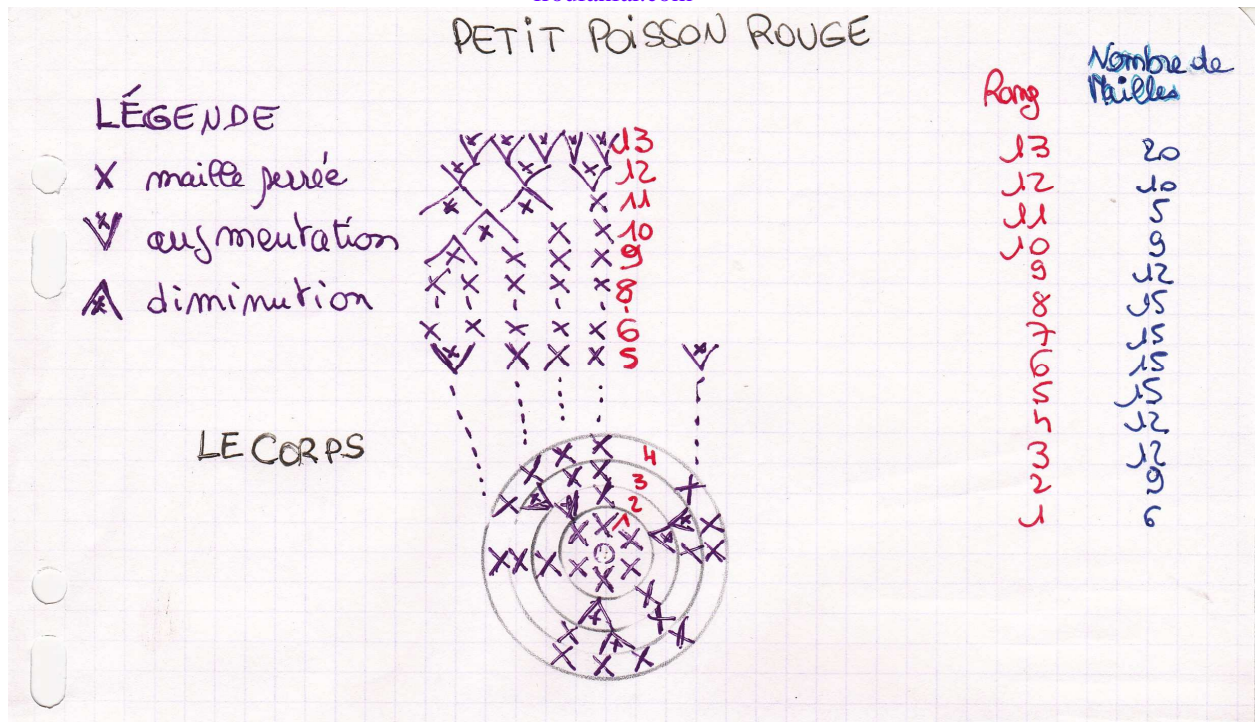 PETIT POISSON ROUGE
LÉGENDE
maille serrée
augmentation
diminution
13
12
11
10
9
8
6
5
LE CORPS
4
3
2
1
Rang Nombre de Mailles
13 20
12 10
11 5
10 9
9 12
8 15
7 15
6 15
5 15
4 12
3 12
2 9
1 6